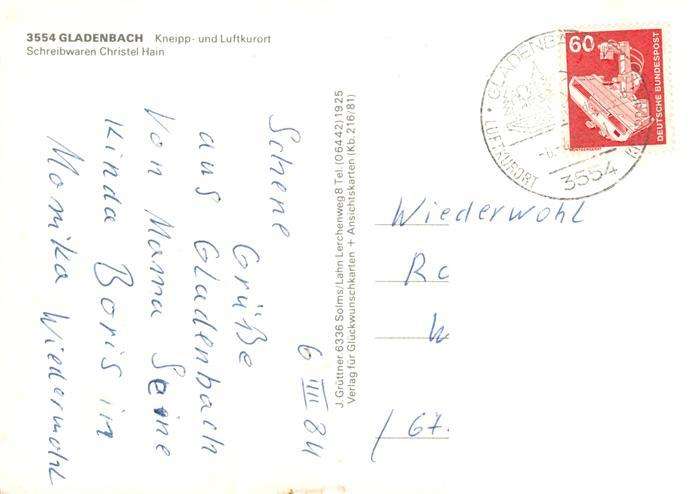 3554 GLADENBACH Kneipp- und Luftkurort
Schreibwaren Christel Hain
6 IIII 84
Schene
Grüße
aus Gladenbach
Von Mama Seine
Kinda Boris in
Monika Wiedermohl
J. Grüttner 6336 Solms/Lahn Lerchenweg 8 Tel. (06442) 1925
Verlag für Glückwunschkarten + Ansichtskarten (Kb. 216/81)
60
DEUTSCHE BUNDESPOST
GLADENBA
LUFTKURORT
3554
Wiederwohl
Rc
W
/ 67.